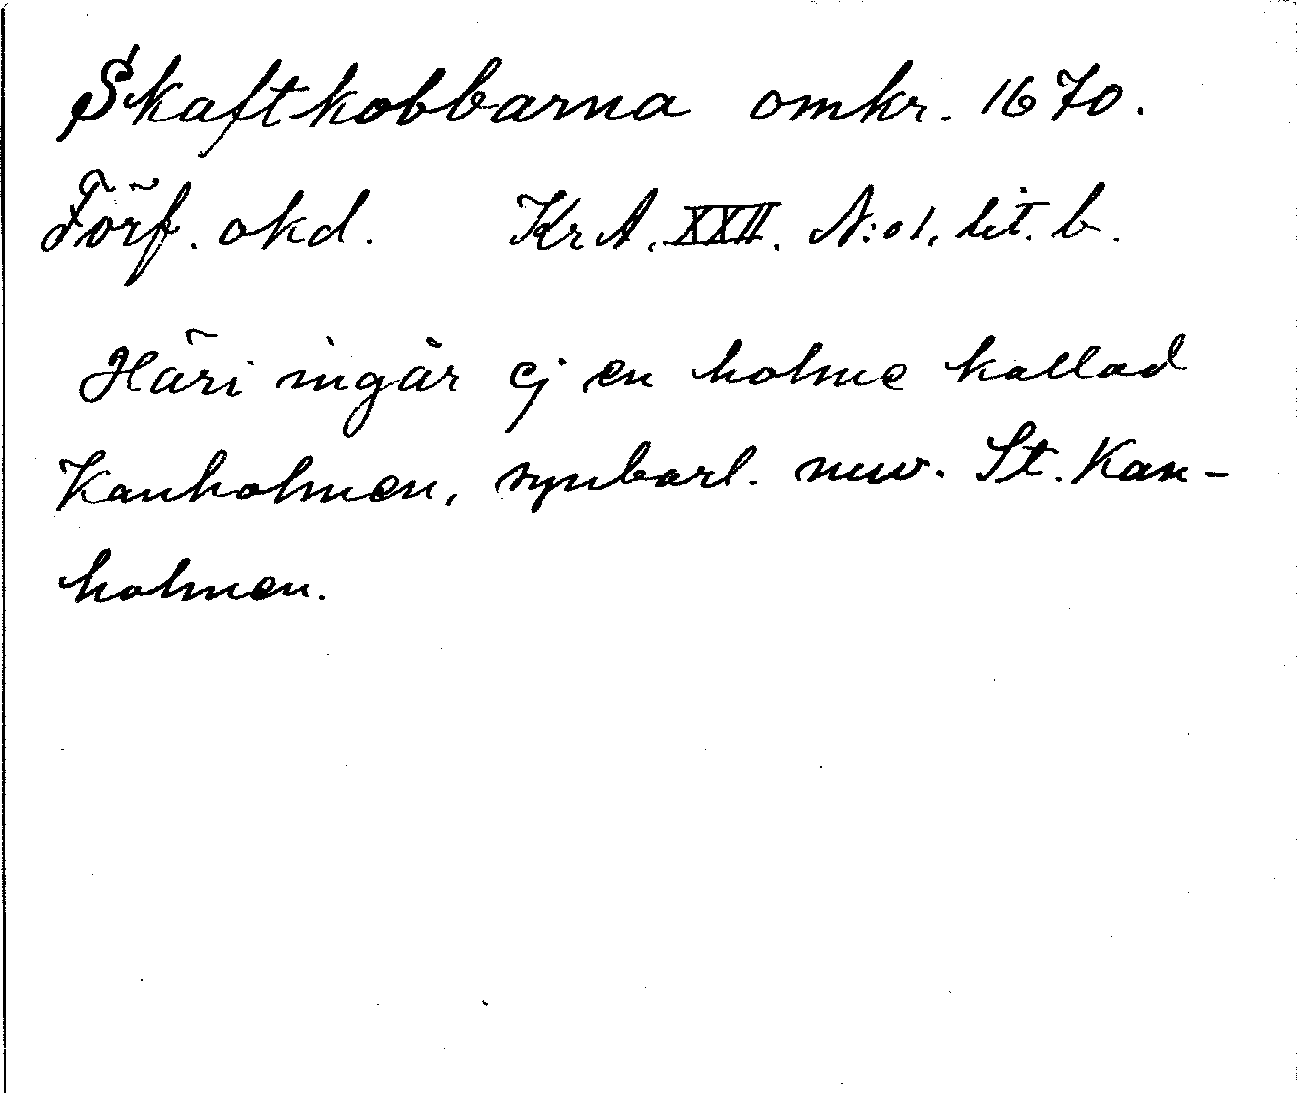 Skaftkobbarna omkr. 1670.
Förf. okd. Kr A. XXII. N:o 1. lit. b.
Häri ingår ej en holme kallad
Kanholmen, synbarl. nuv. St. Kan-
holmen.